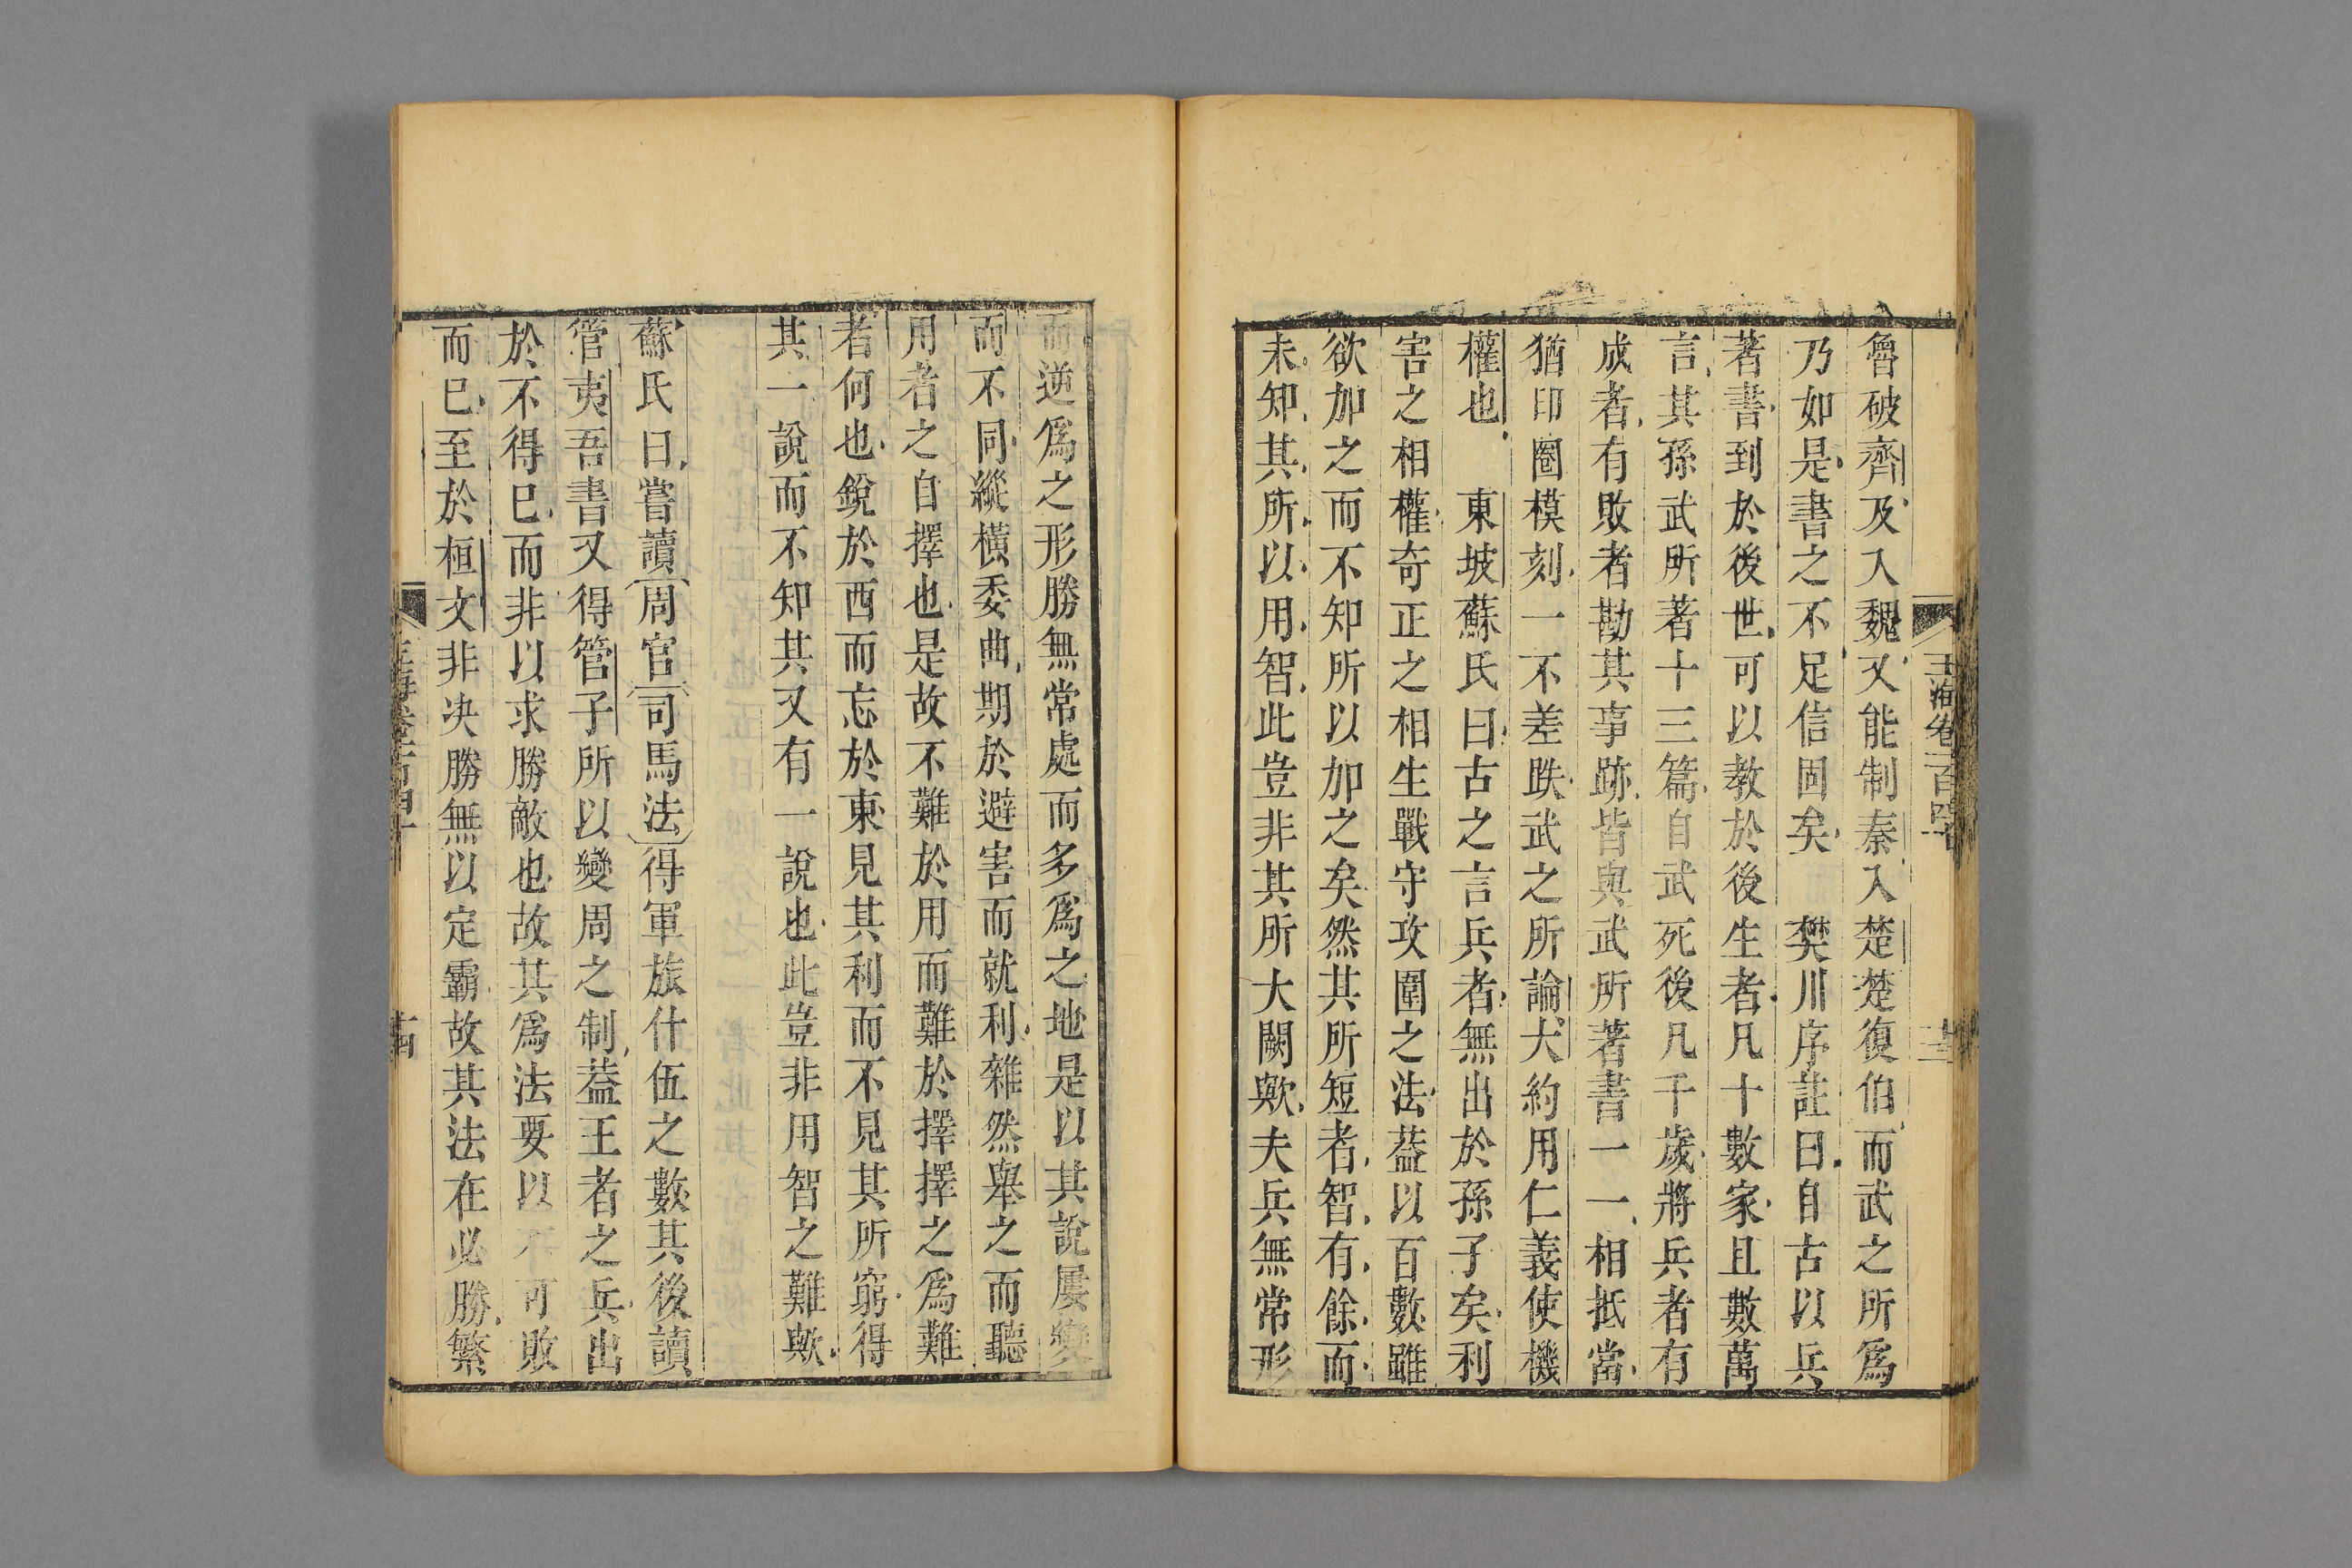 魯破齊及入魏又能制秦入楚楚復伯而武之所爲
乃如是書之不足信固矣　樊川序註曰自古以兵
著書到於後世可以教於後生者凡十數家且數萬
言其孫武所著十三篇自武死後凡千歲將兵者有
成者有敗者勘其事跡皆與武所著書一一相抵當
猶印圈模刻一不差跌武之所論大約用仁義使機
權也　東坡蘇氏曰古之言兵者無出於孫子矣利
害之相權奇正之相生戰守攻圍之法葢以百數雖
欲加之而不知所以加之矣然其所短者智有餘而
未知其所以用智此豈非其所大闕歟夫兵無常形
而逆爲之形勝無常處而多爲之地是以其說屢變
而不同縱橫委曲期於避害而就利雜然舉之而聽
用者之自擇也是故不難於用而難於擇擇之爲難
者何也銳於西而忘於東見其利而不見其所窮得
其一說而不知其又有一說也此豈非用智之難歟
蘇氏曰嘗讀周官司馬法得軍旅什伍之數其後讀
管夷吾書又得管子所以變周之制葢王者之兵出
於不得已而非以求勝敵也故其爲法要以不可敗
而已至於桓文非决勝無以定霸故其法在必勝繁